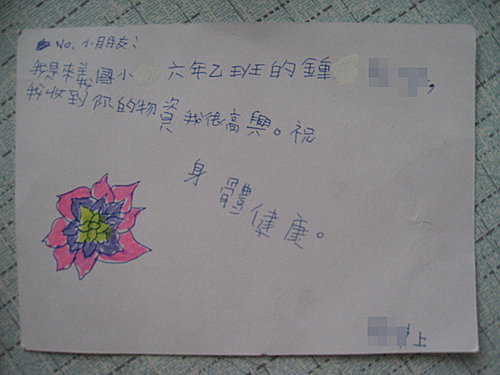 No. 小朋友：
我是來義國小 六年乙班的鍾
我收到你的物資我很高興。祝
身體健康。
上